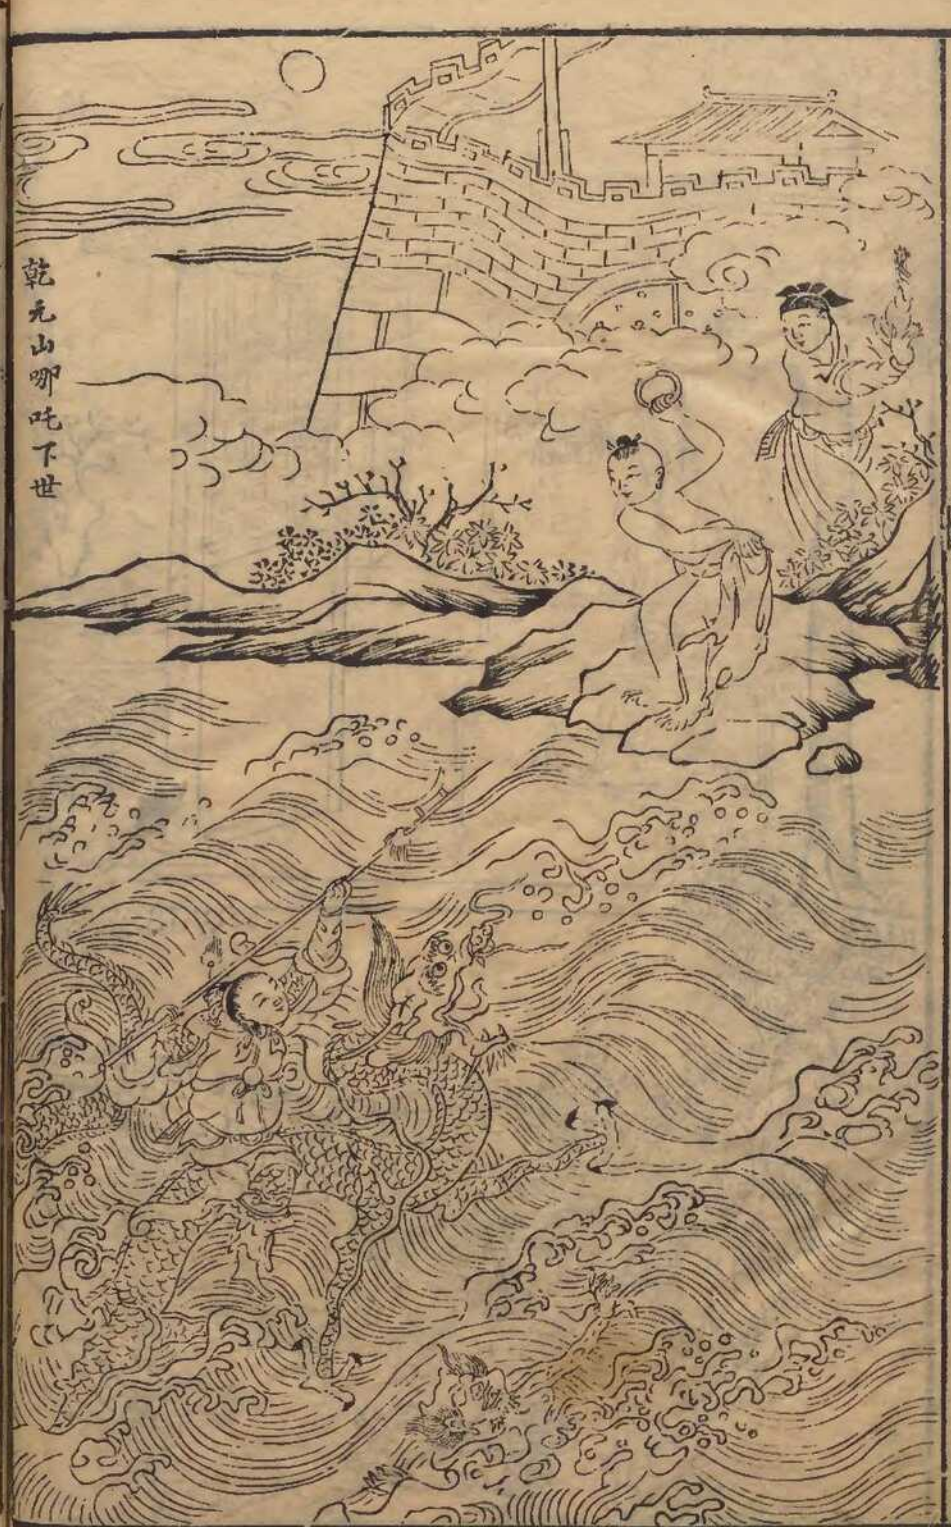 乾元山哪吒下世